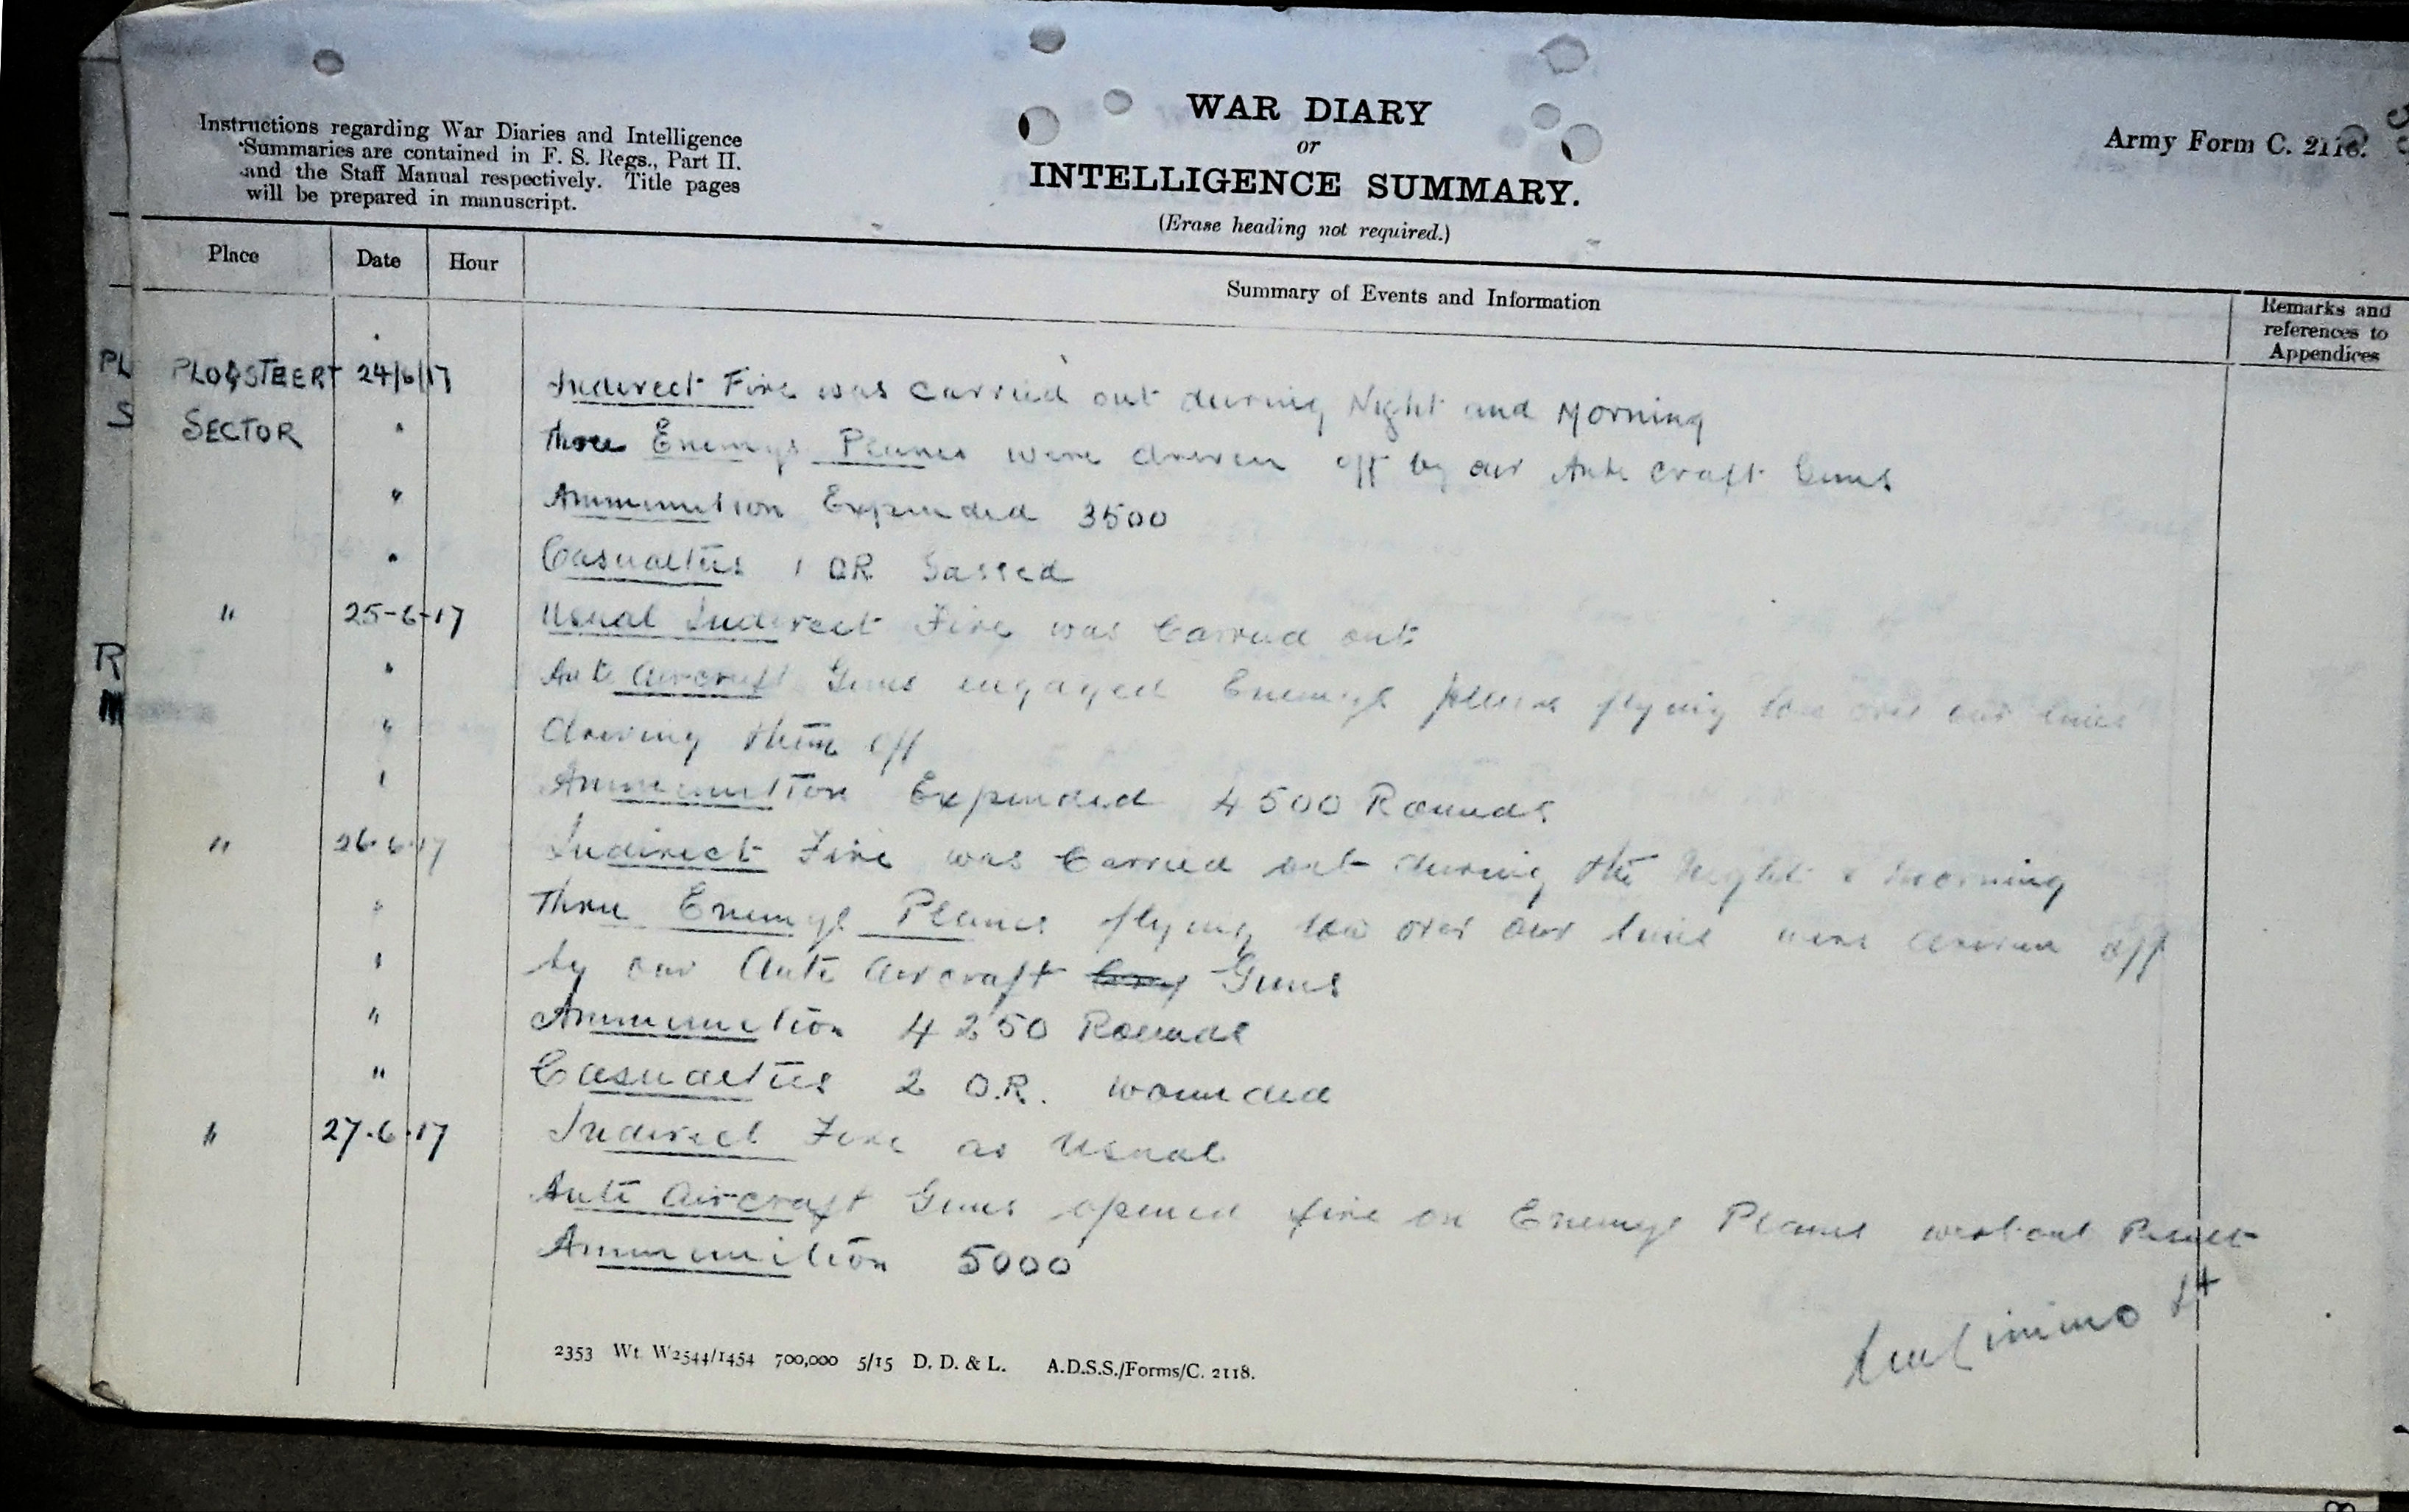 Instructions regarding War Diaries and Intelligence
Summaries are contained in F. S. Regs., Part II.
and the Staff Manual respectively. Title pages
will be prepared in manuscript.
WAR DIARY
or
INTELLIGENCE SUMMARY.
(Erase heading not required.)
Army Form C. 2118.
Place Date Hour Summary of Events and Information Remarks and
references to
Appendices
PL
S
R
M
PLOGSTEERT 24/6/17 Indirect Fire was carried out during Night and Morning
SECTOR " Three Enemys Planes were driven off by our Anti craft Guns
" Ammunition Expended 3500
" Casualties 1 OR Gassed
" 25-6-17 Usual Indirect Fire was Carried out
" Anti aircraft Guns engaged Enemys planes flying low over our lines
" driving them off
" Ammunition Expended 4500 Rounds
" 26.6.17 Indirect Fire was Carried out during the Night & Morning
" Three Enemys Planes flying low over our lines were driven off
" by our Anti Aircraft Guns
" Ammunition 4250 Rounds
" Casualties 2 O.R. wounded
" 27.6.17 Indirect Fire as Usual
Anti Aircraft Guns opened fire on Enemys Planes without Result
Ammunition 5000
Lt
2353 Wt. W2544/1454 700,000 5/15 D. D. & L. A.D.S.S./Forms/C. 2118.